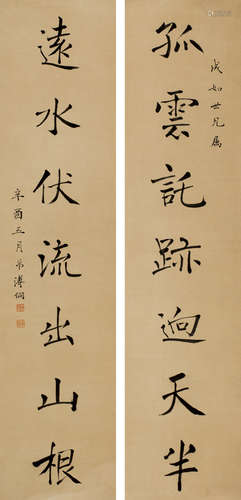 孤雲託跡迥天半
成如世兄属
遠水伏流出山根
辛酉五月弟溥侗